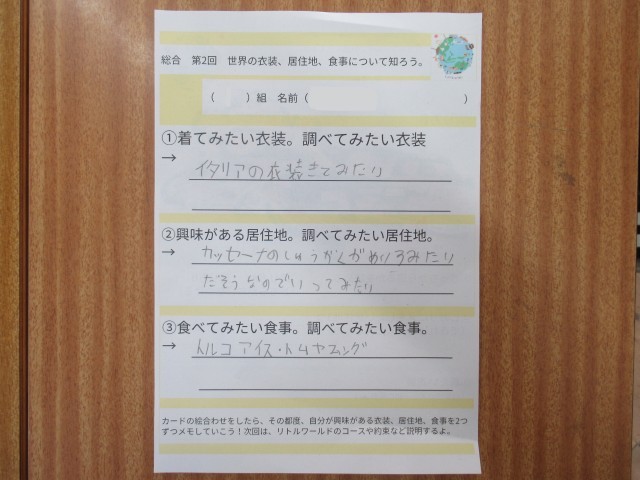 総合 第2回 世界の衣装、居住地、食事について知ろう。
（ ）組 名前（ ）
①着てみたい衣装。調べてみたい衣装
→ イタリアの衣装きてみたい
②興味がある居住地。調べてみたい居住地。
→ カッセーナのしゅうかくがめいろみたい
だそうなのでいってみたい
③食べてみたい食事。調べてみたい食事。
→ トルコアイス・トムヤムング
カードの絵合わせをしたら、その都度、自分が興味がある衣装、居住地、食事を2つ
ずつメモしていこう！次回は、リトルワールドのコースや約束など説明するよ。